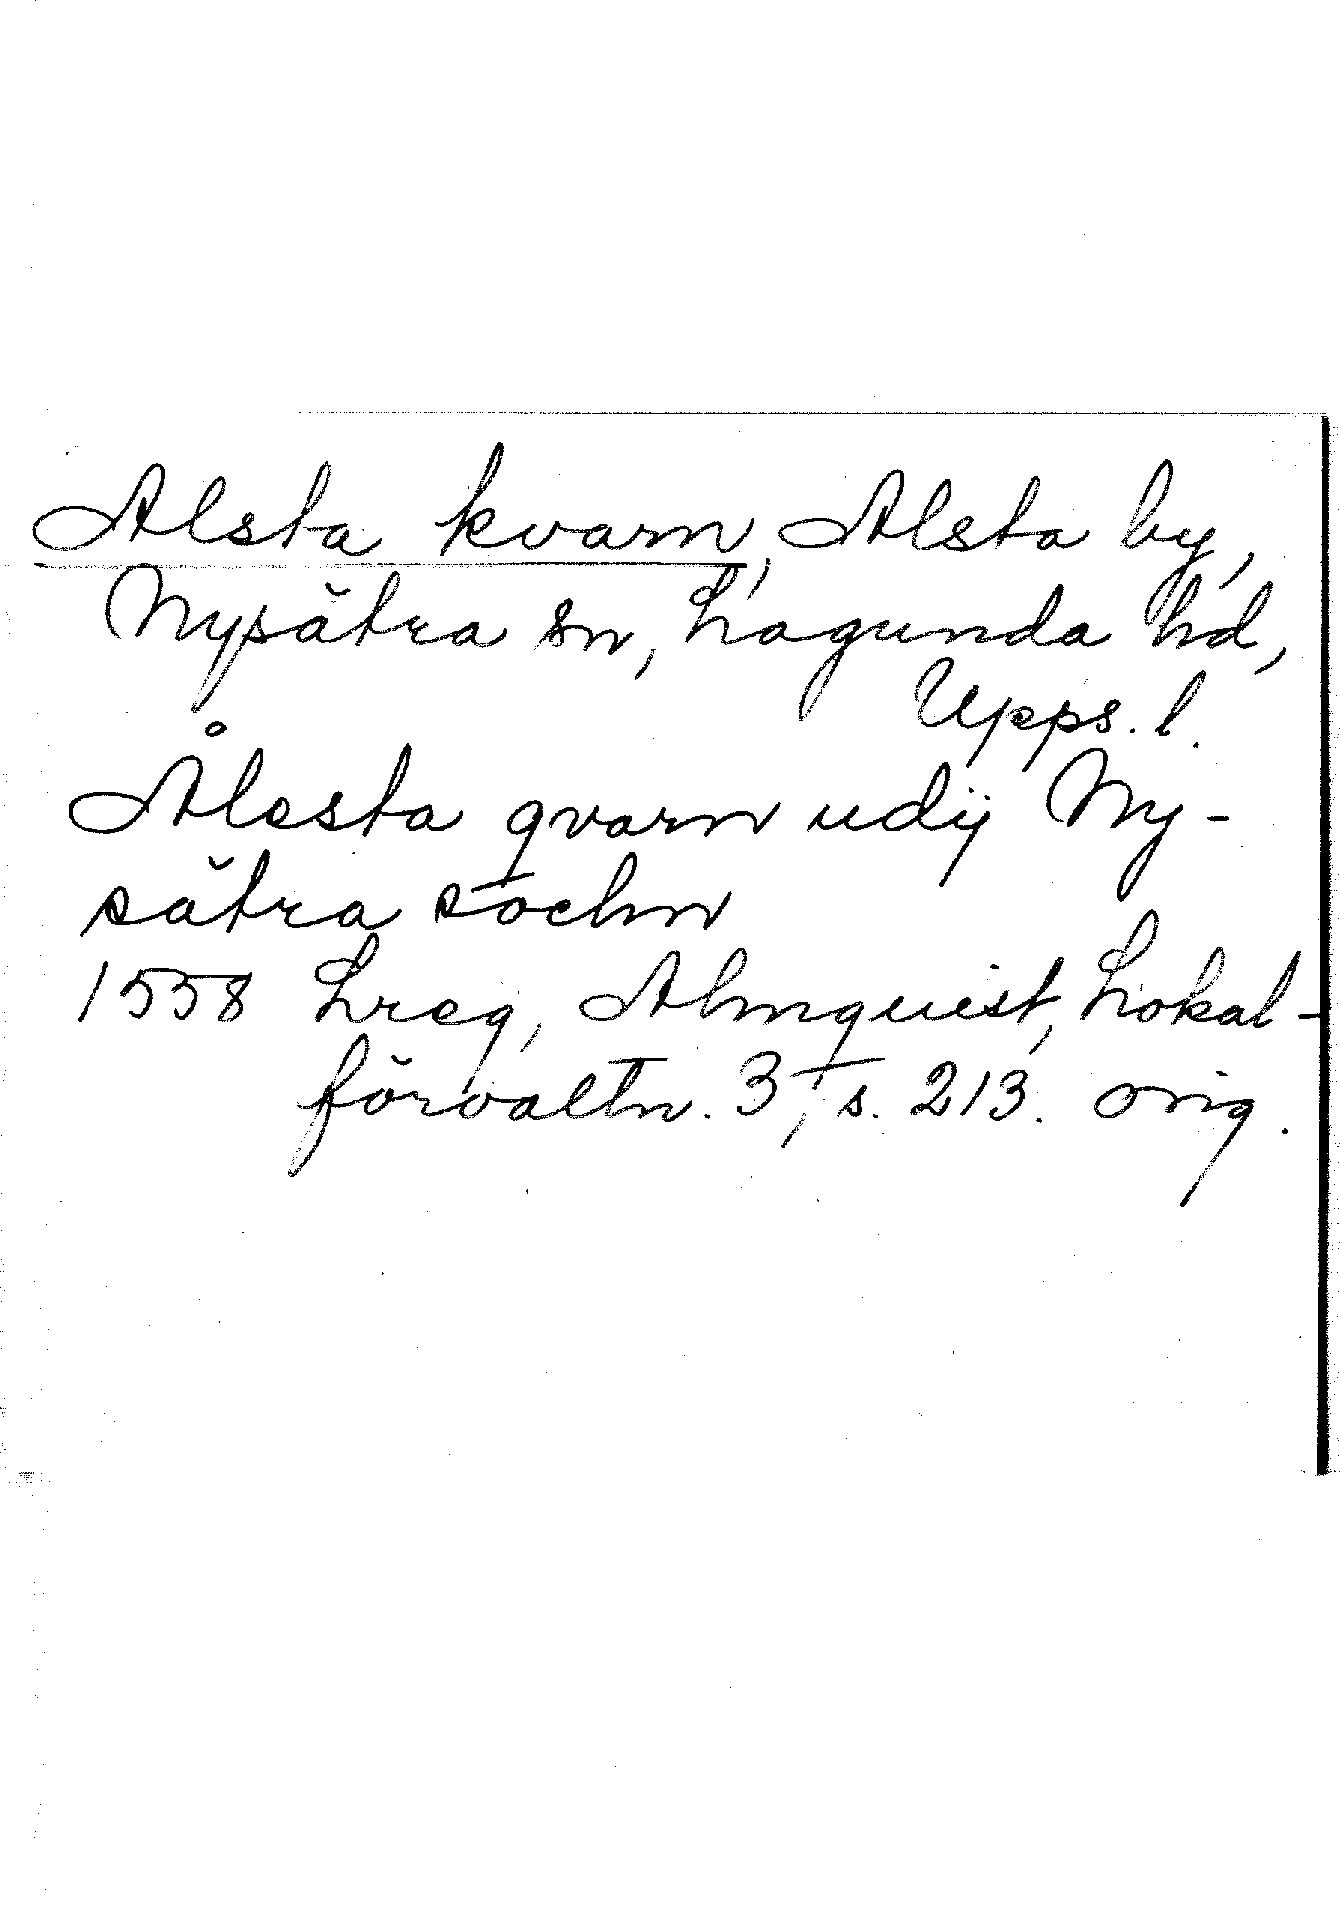 Alsta kvarn, Alsta by,
Nysätra sn, Lagunda hd,
Upps. l.
Ålesta qvarn udij Ny-
sätra sochn
1558 Lreg, Almquist, Lokal-
förvaltn. 3, s. 213. orig.